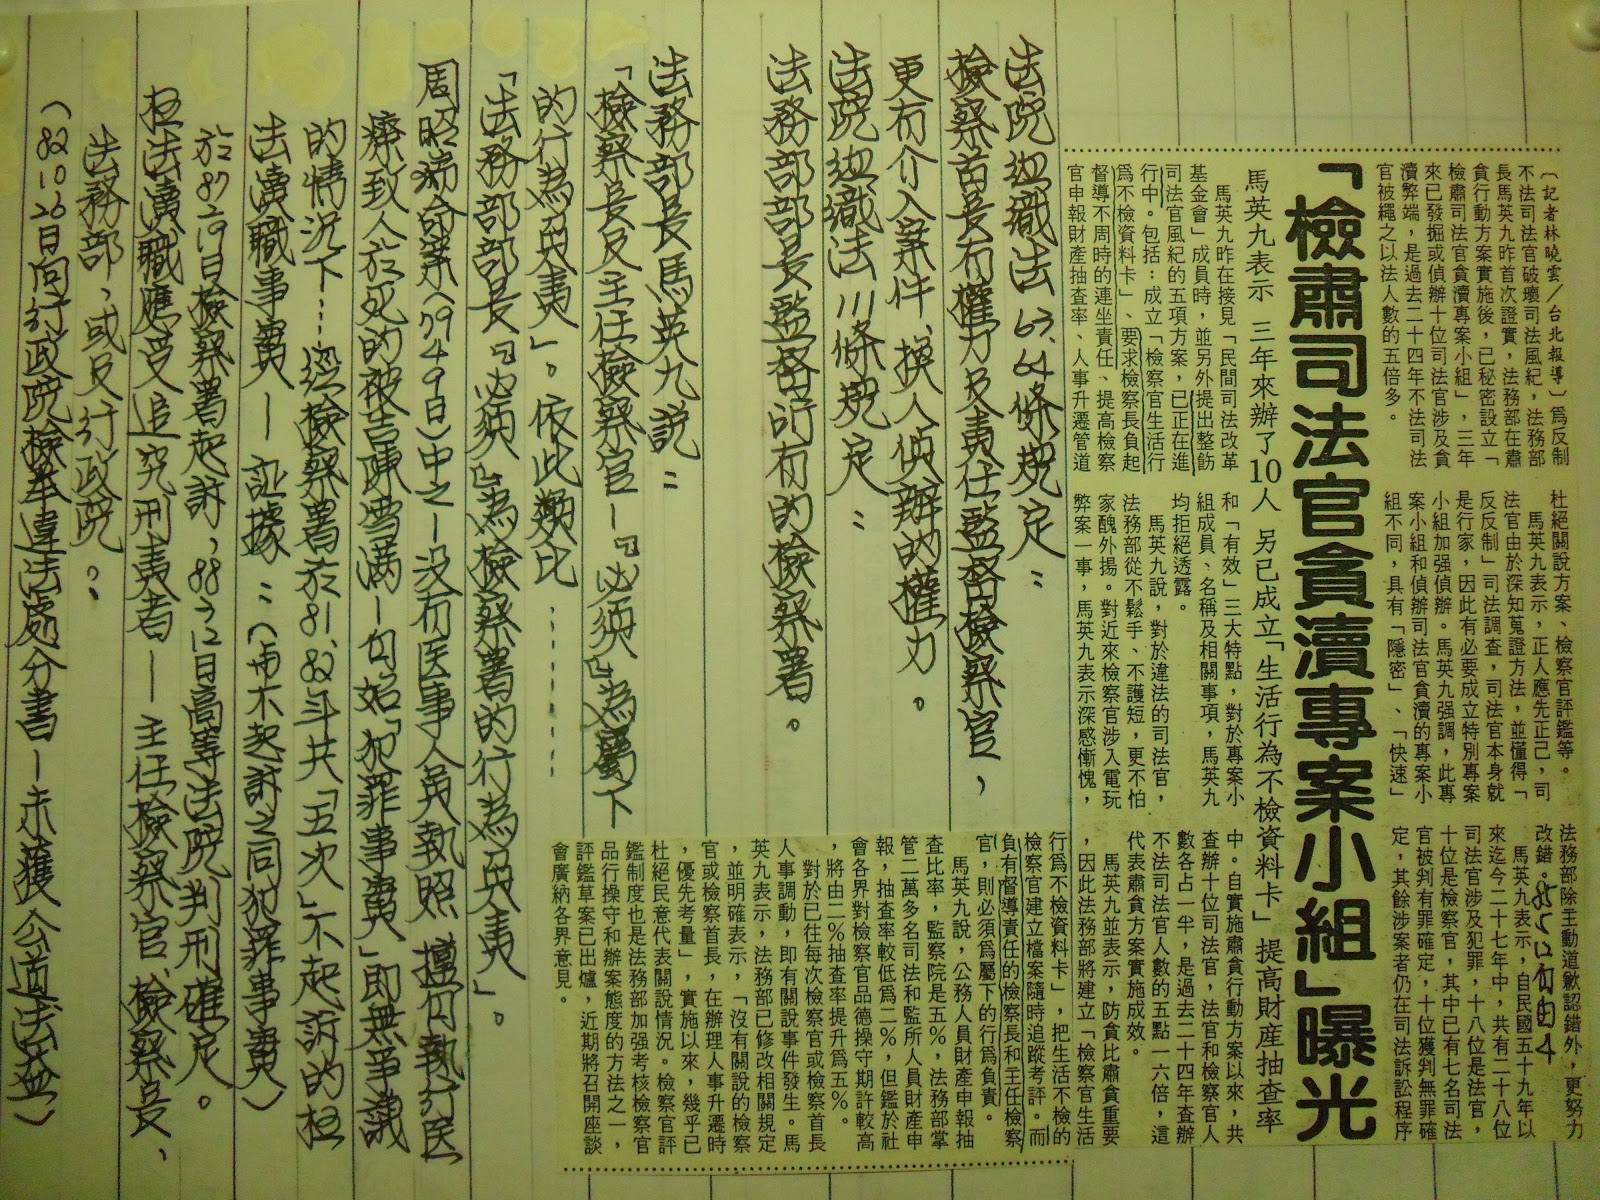 「檢肅司法官貪瀆專案小組」曝光
馬英九表示 三年來辦了10人 另已成立「生活行為不檢資料卡」提高財產抽查率
〔記者林曉雲／台北報導〕為反制
不法司法官破壞司法風紀，法務部
長馬英九昨首次證實，法務部在肅
貪行動方案實施後，已秘密設立「
檢肅司法官貪瀆專案小組」，三年
來已發掘或偵辦十位司法官涉及貪
瀆弊端，是過去二十四年不法司法
官被繩之以法人數的五倍多。
馬英九昨在接見「民間司法改革
基金會」成員時，並另外提出整飭
司法官風紀的五項方案，已正在進
行中。包括：成立「檢察官生活行
為不檢資料卡」、要求檢察長負起
督導不周時的連坐責任、提高檢察
官申報財產抽查率、人事升遷管道
杜絕關說方案、檢察官評鑑等。
馬英九表示，正人應先正己，司
法官由於深知蒐證方法，並懂得「
反反制」司法調查，司法官本身就
是行家，因此有必要成立特別專案
小組加強偵辦。馬英九強調，此專
案小組和偵辦司法官貪瀆的專案小
組不同，具有「隱密」、「快速」
和「有效」三大特點，對於專案小
組成員、名稱及相關事項，馬英九
均拒絕透露。
馬英九說，對於違法的司法官，
法務部從不鬆手、不護短，更不怕
家醜外揚。對近來檢察官涉入電玩
弊案一事，馬英九表示深感慚愧，
法務部除主動道歉認錯外，更努力
改錯。85 5 12 自由 4
馬英九表示，自民國五十九年以
來迄今二十七年中，共有二十八位
司法官涉及犯罪，十八位是法官，
十位是檢察官，其中已有七名司法
官被判有罪確定，十位獲判無罪確
定，其餘涉案者仍在司法訴訟程序
中。自實施肅貪行動方案以來，共
查辦十位司法官，法官和檢察官人
數各占一半，是過去二十四年查辦
不法司法官人數的五點一六倍，這
代表肅貪方案實施成效。
馬英九並表示，防貪比肅貪重要
，因此法務部將建立「檢察官生活
行為不檢資料卡」，把生活不檢的
檢察官建立檔案隨時追蹤考評。而
負有督導責任的檢察長和主任檢察
官，則必須為屬下的行為負責。
馬英九說，公務人員財產申報抽
查比率，監察院是五％，法務部掌
管二萬多名司法和監所人員財產申
報，抽查率較低為二％，但鑑於社
會各界對檢察官品德操守期許較高
，將由二％抽查率提升為五％。
對於已往每次檢察官或檢察首長
人事調動，即有關說事件發生。馬
英九表示，法務部已修改相關規定
，並明確表示，「沒有關說的檢察
官或檢察首長，在辦理人事升遷時
，優先考量」，實施以來，幾乎已
杜絕民意代表關說情況。檢察官評
鑑制度也是法務部加強考核檢察官
品行操守和辦案態度的方法之一，
評鑑草案已出爐，近期將召開座談
會廣納各界意見。
法院組織法63.64條規定：
檢察首長有權力及責任監督檢察官，
更有介入案件、換人偵辦的權力。
法院組織法111條規定：
法務部部長監督所有的檢察署。
法務部長馬英九說：
「檢察長及主任檢察官—『必須』為屬下
的行為負責」。依此類比……
「法務部部長『必須』為檢察署的行為負責」。
周昭滿命案（79 4 9日）中之—沒有医事人員執照 擅自執行医
療致人於死的被告陳雪滿—自始「犯罪事實」即無爭議
的情況下……經檢察署於81、82年共「五次」不起訴的枉
法瀆職事實—証據：（両不起訴之同犯罪事實）
於87 2 19日檢察署起訴，88 3 12日高等法院判刑確定。
枉法瀆職應受追究刑責者——主任檢察官、檢察長、
法務部，或及行政院。
（82 10 26日向行政院檢舉違法處分書—未獲公道法益）